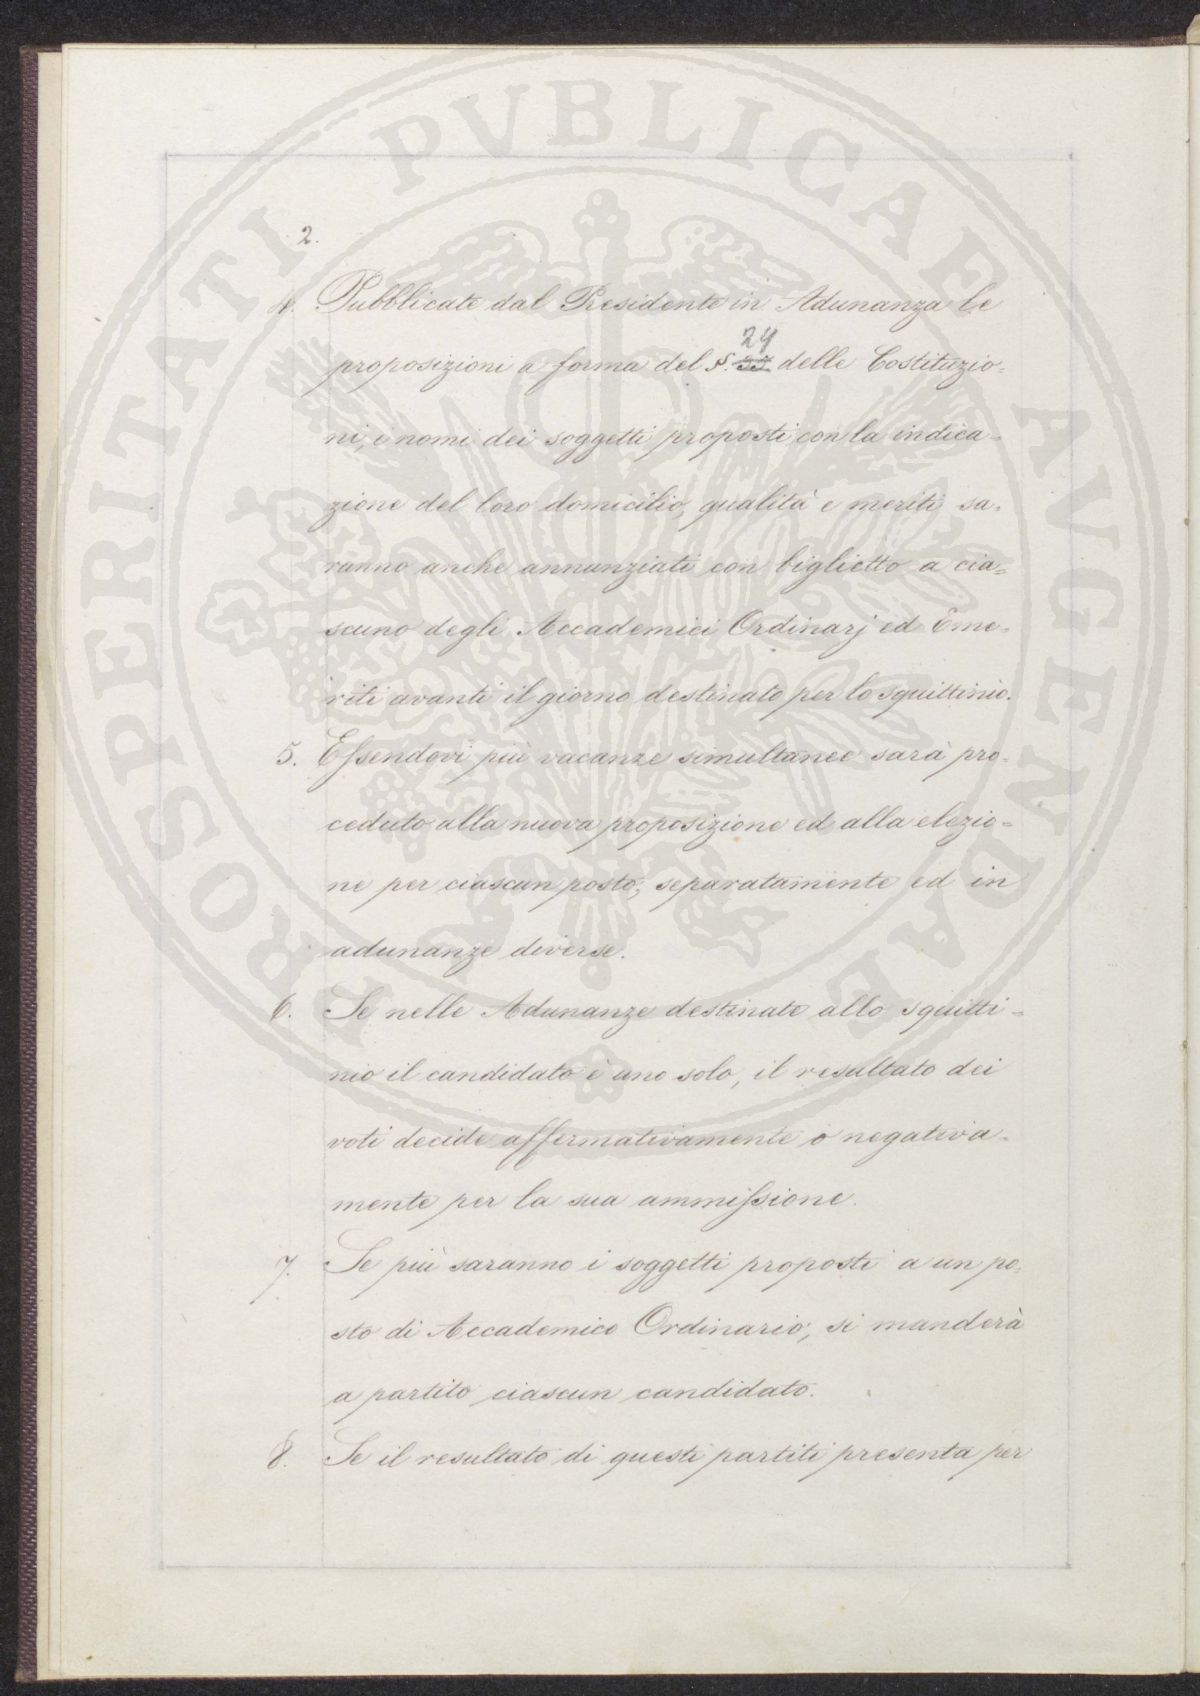 PROSPERITATI PVBLICAE AVGENDAE
2.
4. Pubblicate dal Presidente in Adunanza le
24
proposizioni a forma del §. 33 delle Costituzio=
ni, i nomi dei soggetti proposti con la indica=
zione del loro domicilio, qualità e meriti sa=
ranno anche annunziati con biglietto a cia=
scuno degli Accademici Ordinarj ed Eme=
riti avanti il giorno destinato per lo squittinio.
5. Essendovi più vacanze simultanee sarà pro=
ceduto alla nuova proposizione ed alla elezio=
ne per ciascun posto, separatamente ed in
adunanze diverse.
6. Se nelle Adunanze destinate allo squitti=
nio il candidato è uno solo, il resultato dei
voti decide affermativamente o negativa=
mente per la sua ammissione.
7. Se più saranno i soggetti proposti a un po=
sto di Accademico Ordinario, si manderà
a partito ciascun candidato.
8. Se il resultato di questi partiti presenta per